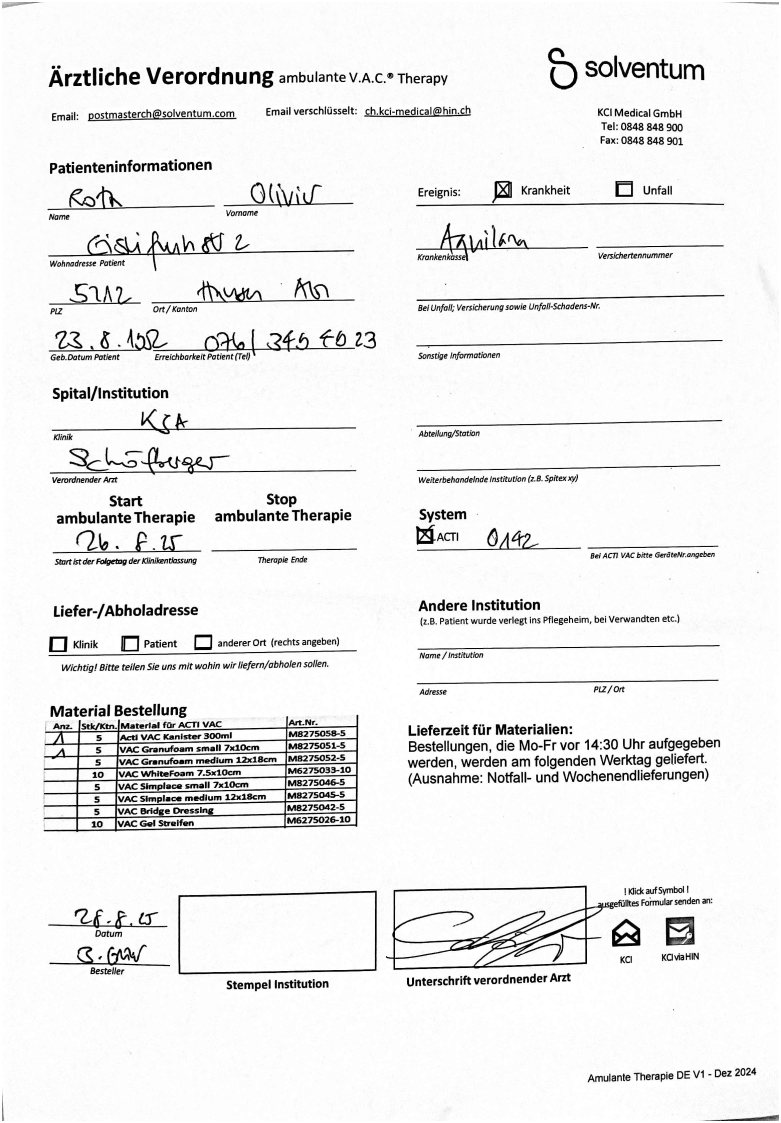 Ärztliche Verordnung ambulante V.A.C.® Therapy
solventum
Email: postmasterch@solventum.com Email verschlüsselt: ch.kci-medical@hin.ch
KCI Medical GmbH
Tel: 0848 848 900
Fax: 0848 848 901
Patienteninformationen
Roth
Name Vorname
Ereignis: Krankheit Unfall
2
Wohnadresse Patient
Aquilana
Krankenkasse Versichertennummer
5212
PLZ Ort / Kanton
Bei Unfall; Versicherung sowie Unfall-Schadens-Nr.
23.8.1952
Geb.Datum Patient Erreichbarkeit Patient (Tel)
Sonstige Informationen
Spital/Institution
KSA
Klinik
Abteilung/Station
Verordnender Arzt
Weiterbehandelnde Institution (z.B. Spitex xy)
Start
ambulante Therapie
Stop
ambulante Therapie
26.8.25
Start ist der Folgetag der Klinikentlassung Therapie Ende
System
ACTI 0142
Bei ACTI VAC bitte GeräteNr.angeben
Liefer-/Abholadresse
Klinik Patient anderer Ort (rechts angeben)
Wichtig! Bitte teilen Sie uns mit wohin wir liefern/abholen sollen.
Andere Institution
(z.B. Patient wurde verlegt ins Pflegeheim, bei Verwandten etc.)
Name / Institution
Adresse PLZ / Ort
Material Bestellung
Anz. Stk/Ktn. Material für ACTI VAC Art.Nr.
1 5 Acti VAC Kanister 300ml M8275058-5
1 5 VAC Granufoam small 7x10cm M8275051-5
5 VAC Granufoam medium 12x18cm M8275052-5
10 VAC WhiteFoam 7.5x10cm M6275033-10
5 VAC Simplace small 7x10cm M8275046-5
5 VAC Simplace medium 12x18cm M8275045-5
5 VAC Bridge Dressing M8275042-5
10 VAC Gel Streifen M6275026-10
Lieferzeit für Materialien:
Bestellungen, die Mo-Fr vor 14:30 Uhr aufgegeben
werden, werden am folgenden Werktag geliefert.
(Ausnahme: Notfall- und Wochenendlieferungen)
28.8.25
Datum
Besteller
Stempel Institution
Unterschrift verordnender Arzt
! Klick auf Symbol !
ausgefülltes Formular senden an:
KCI KCI via HIN
Amulante Therapie DE V1 - Dez 2024